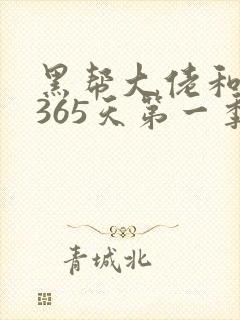 黑帮大佬和
365天第一季
青城北